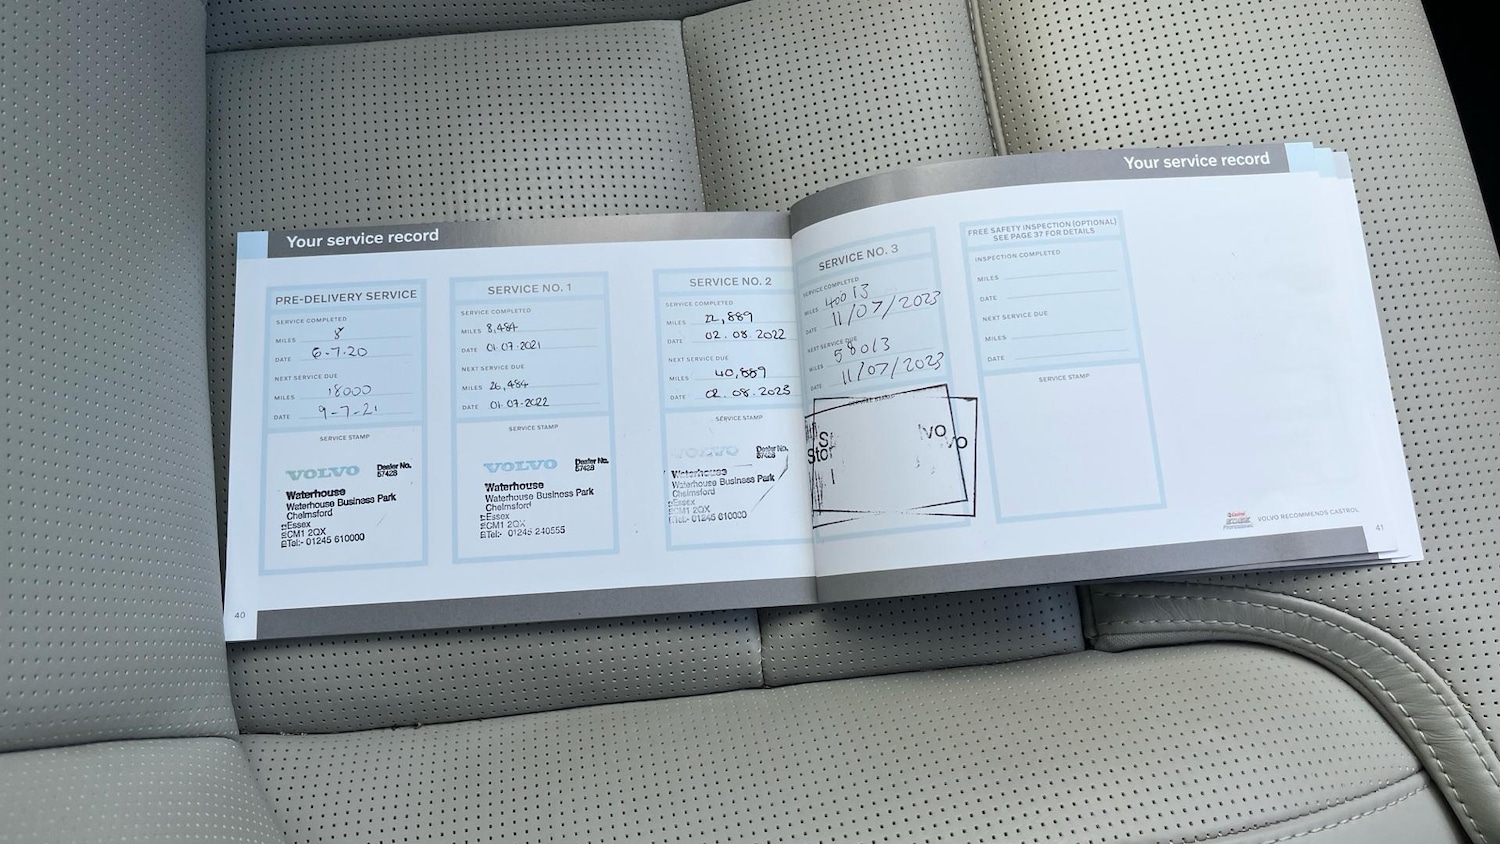 Your service record
PRE-DELIVERY SERVICE
SERVICE COMPLETED
MILES 8
DATE 6-7.20
NEXT SERVICE DUE
MILES 18000
DATE 9-7-21
SERVICE STAMP
VOLVO Dealer No.
57428
Waterhouse
Waterhouse Business Park
Chelmsford
Essex
CM1 2QX
Tel:- 01245 610000
40
SERVICE NO. 1
SERVICE COMPLETED
MILES 8,484
DATE 01.07.2021
NEXT SERVICE DUE
MILES 26,484
DATE 01.07.2022
SERVICE STAMP
VOLVO Dealer No.
57428
Waterhouse
Waterhouse Business Park
Chelmsford
Essex
CM1 2QX
Tel:- 01245 240555
SERVICE NO. 2
SERVICE COMPLETED
MILES 22,889
DATE 02.08.2022
NEXT SERVICE DUE
MILES 40,889
DATE 02.08.2023
SERVICE STAMP
VOLVO Dealer No.
57428
Waterhouse
Waterhouse Business Park
Chelmsford
Essex
CM1 2QX
Tel:- 01245 610000
Your service record
SERVICE NO. 3
SERVICE COMPLETED
MILES 40013
DATE 11/07/2023
NEXT SERVICE DUE
MILES 58013
DATE 11/07/2023
SERVICE STAMP
FREE SAFETY INSPECTION (OPTIONAL)
SEE PAGE 37 FOR DETAILS
INSPECTION COMPLETED
MILES
DATE
NEXT SERVICE DUE
MILES
DATE
SERVICE STAMP
Castrol
EDGE
Professional
VOLVO RECOMMENDS CASTROL
41